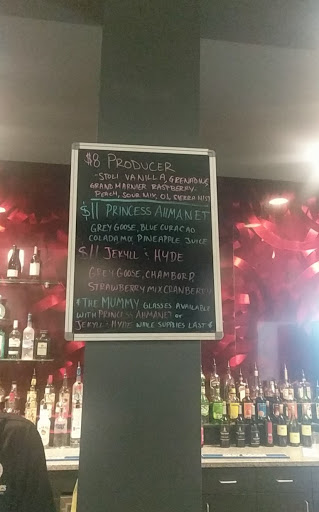 $8 PRODUCER
-STOLI VANILLA, GRENADINE,
GRAND MARNIER RASPBERRY
PEACH, SOUR MIX, OJ, SIERRA MIST
$11 PRINCESS AHMANET
GREY GOOSE, BLUE CURACAO
COLADA MIX PINEAPPLE JUICE
$11 JEKYLL & HYDE
GREY GOOSE, CHAMBORD,
STRAWBERRY MIX CRANBERRY
*THE MUMMY GLASSES AVAILABLE
WITH PRINCESS AHMANET OR
JEKYLL & HYDE WHILE SUPPLIES LAST *